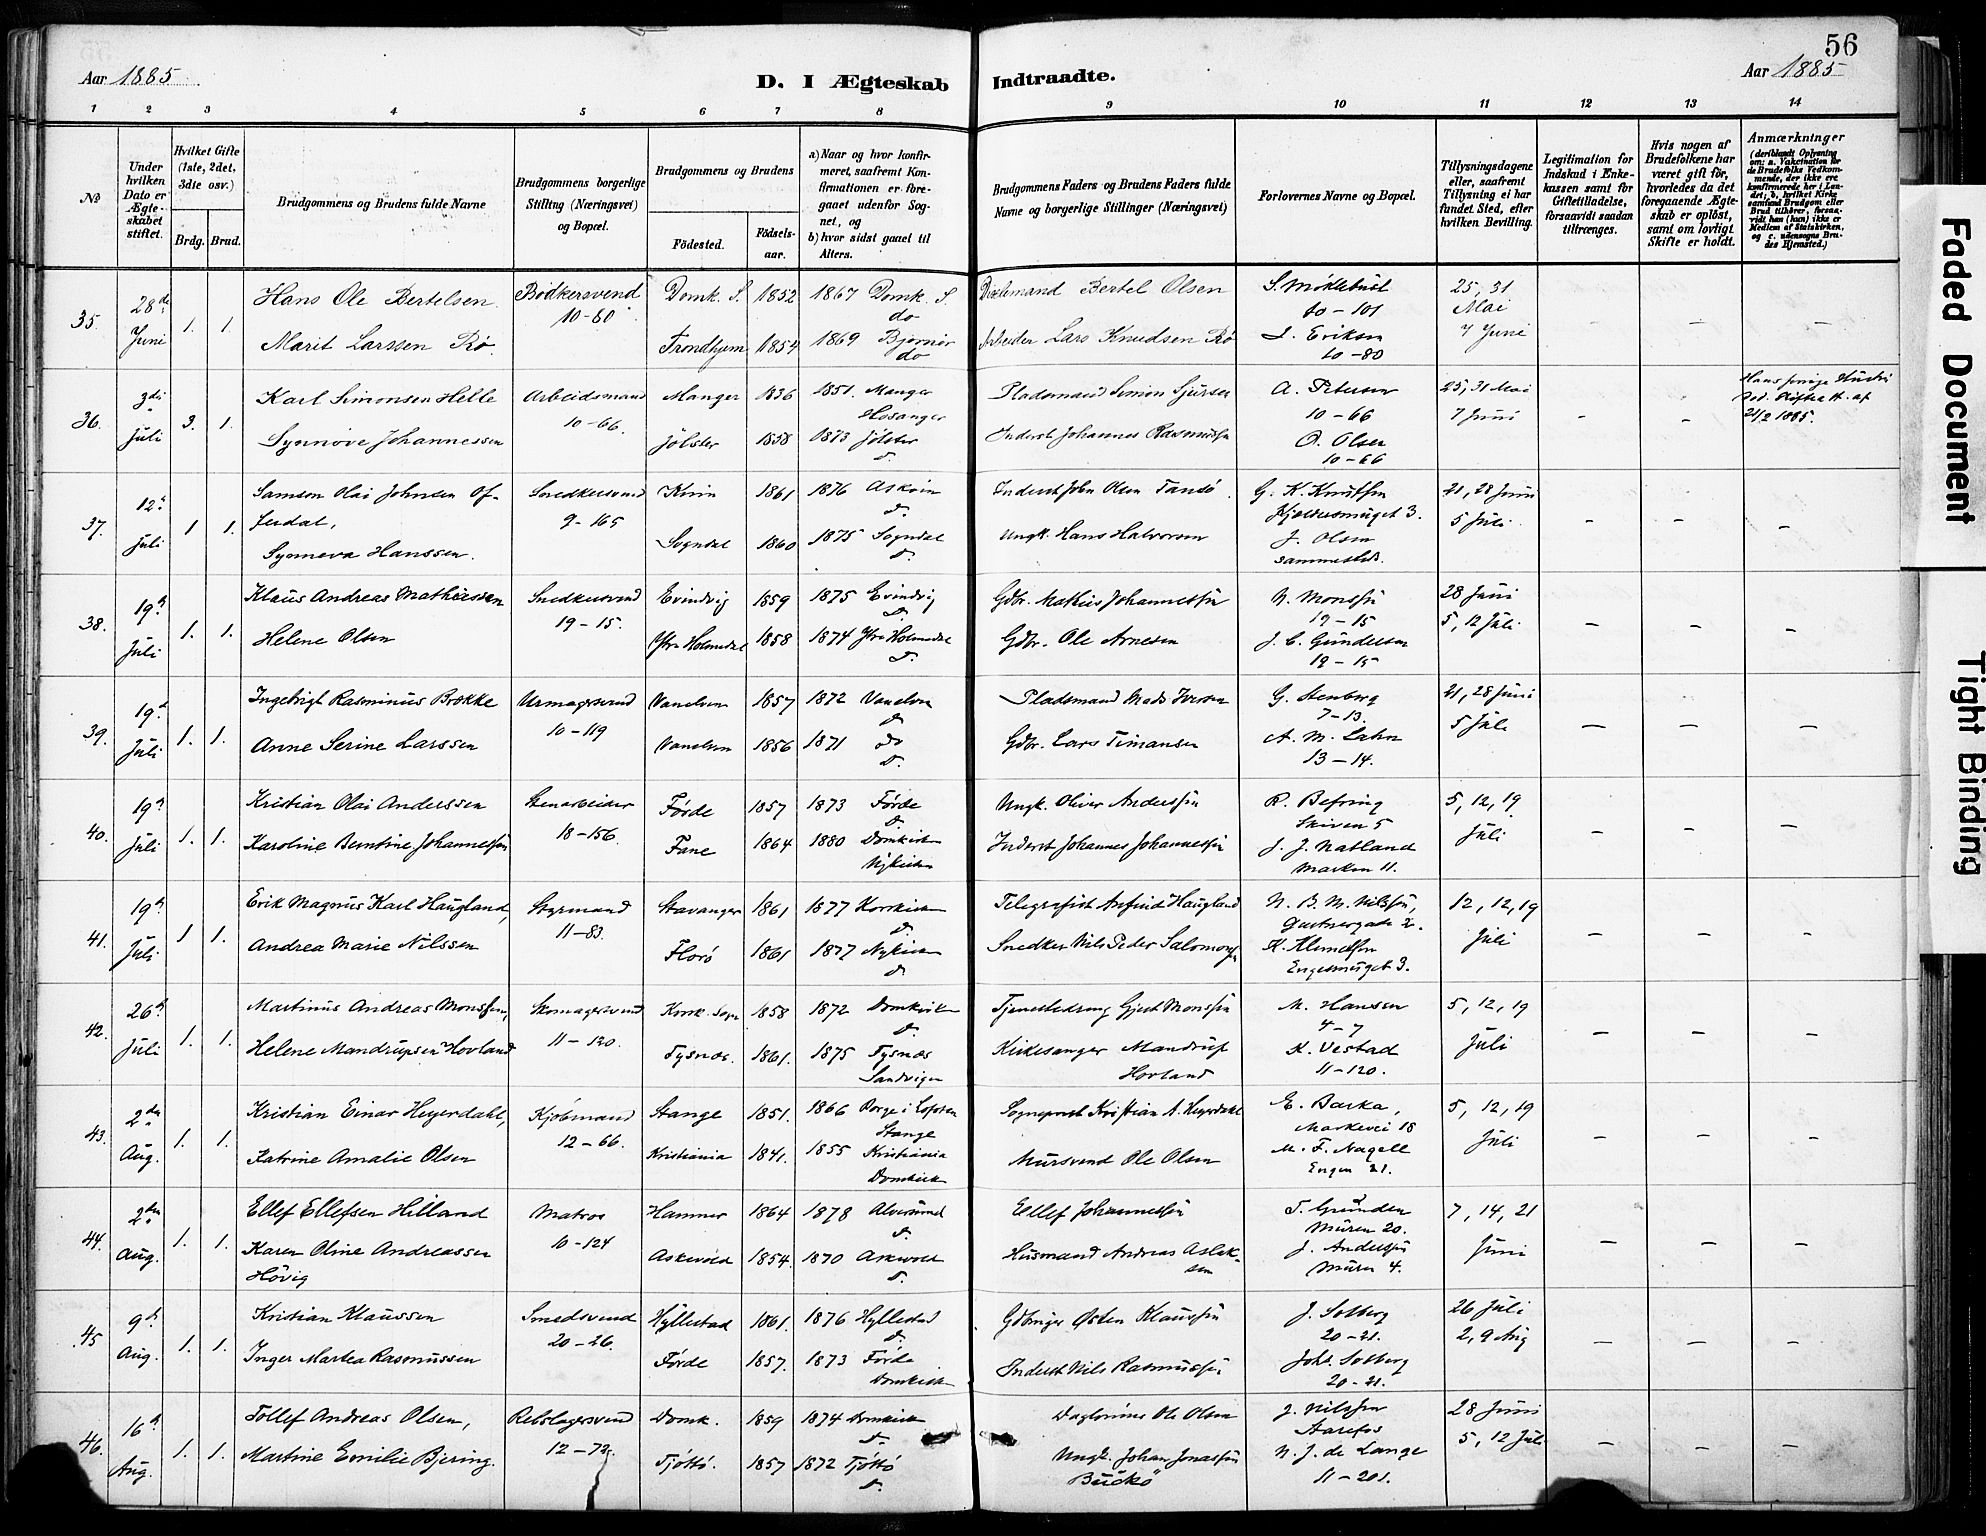 56
Aar 1885
D. I Ægteskab Indtraadte.
Aar 1885
1 2 3 4 5 6 7 8 9 10 11 12 13 14
No
Under hvilken Dato er Ægteskabet stiftet.
Hvilket Gifte (1ste, 2det, 3die osv.)
Brdg. Brud.
Brudgommens og Brudens fulde Navne
Brudgommens borgerlige Stilling (Næringsvei) og Bopæl.
Brudgommens og Brudens
Fødested.
Fødselsaar.
a) Naar og hvor konfirmeret, saafremt Konfirmationen er foregaaet udenfor Sognet, og
b) hvor sidst gaaet til Alters.
Brudgommens Faders og Brudens Faders fulde Navne og borgerlige Stillinger (Næringsvei)
Forlovernes Navne og Bopæl.
Tillysningsdagene eller, saafremt Tillysning ei har fundet Sted, efter hvilken Bevilling.
Legitimation for Indskud i Ænkekassen samt for Giftetilladelse, forsaavidt saadan tiltrænges.
Hvis nogen af Brudefolkene har været gift før, hvorledes da det foregaaende Ægteskab er opløst, samt om lovligt Skifte er holdt.
Anmærkninger (deriblandt Oplysning om: a. Vakcination for de Brudefolks Vedkommende, der ikke ere konfirmerede her i Landet, b. hvilket Kirkesamfund Brudgom eller Brud tilhører, forsaavidt han (hun) ikke er Medlem af Statskirken, og c. udensogns Brudes Hjemsted.)
35. 28de Juni 1. 1.
Hans Ole Bertelsen Bødkersvend 10-80 Domk. S. 1852 1867 Domk. S. do
Bertel Olsen S. Møklebust 10-101 25, 31 Mai
Marit Larssen Rø Trondhjem 1854 1869 Bjørnør do
Arbeider Lars Knudsen Rø L. Eriksen 10-80 7 Juni
36. 3die Juli 3. 1.
Karl Simonsen Helle Arbeidsmand 10-66 Manger 1836 1851. Manger Hosanger
Pladsmand Simon Sjursen A. Petersen 10-66 25, 31 Mai
Synnøve Johannessen Jølster 1858 1873 Jølster d.
Inderst Johannes Rasmussen O. Olsen 10-66 7 Juni
Hans forrige Hustru død. Skifteatt. af 21/2 1885.
37. 12te Juli 1 1.
Samson Olai Johnsen Oferdal, Snedkersvend 9-165 Kinn 1861 1876 Askvin d.
Inderst John Olsen Tansø G. K. Knutsen Kjeldersmuget 3. 21, 28 Juni
Synneva Hanssen. Sogndal 1860 1875 Sogndal d.
Ungk. Hans Halvorsen J. Olsen sammesteds. 5 Juli
38. 19de Juli 1. 1.
Klaus Andreas Mathiassen Snedkersvend 19-15. Evindvig 1859 1875 Evindvig d.
Gdbr. Mathias Johannessen N. Monssen 19-15 28 Juni
Helene Olsen Ytre Holmedal 1858 1874 Ytre Holmedal d.
Gdbr. Ole Arnesen J. C. Gundersen 19-15 5, 12 Juli
39. 19de Juli 1. 1.
Ingebrigt Rasminus Brække Urmagersvend 10-119 Vanelven 1857 1872 Vanelven d.
Pladsmand Mads Iversen G. Stenberg 7-13. 21, 28 Juni
Anne Serine Larssen Vanelven 1856 1871 do d.
Gdbr. Lars Timansen A. M. Lahn 13-14. 5 Juli
40. 19de Juli 1. 1.
Kristian Olai Anderssen Stenarbeider 18-156. Førde 1857 1873 Førde d.
Ungk. Oliver Anderssen R. Befring Skiven 5 5, 12, 19 Juli
Karoline Berntine Johannessen Fane 1864 1880 Domkirken Nykirken
Inderst Johannes Johannessen J. J. Natland Marken 11.
41. 19de Juli 1 1.
Erik Magnus Karl Haugland, Styrmand 11-83. Stavanger 1861 1877 Korskirken d.
Telegrafist Arfind Haugland N. B. M. Nilssen, 12, 12, 19 Juli
Andrea Marie Nilssen Florø 1861 1877 Nykirken d.
Snedker Nils Peder Salomonsen K. Klemetsen Engesmuget 3.
42. 26de Juli 1. 1.
Martinus Andreas Monssen, Skomagersvend 11-120. Korsk. Sogn 1858 1872 Domkirken d.
Tjenestedreng Gjert Monssen M. Hansen 4-7 5, 12, 19 Juli
Helene Mandrupsen Hovland Tysnæs. 1861. 1875 Tysnæs Sandvigen
Kirkesanger Mandrup Hovland K. Vestad 11-120.
43. 2den Aug. 1. 1.
Kristian Einar Heyerdahl, Kjøbmand 12-66. Stange 1851. 1866 Borge i Lofoten Stange
Sogneprest Kristian A. Heyerdahl E. Barka, Markevei 18 5, 12, 19 Juli
Katrine Amalie Olsen Kristiania 1841. 1855 Kristiania Domkirk
Mursvend Ole Olsen M. F. Nagell Engen 21.
44. 2den Aug. 1. 1.
Ellef Ellefsen Hilland Matros 10-124 Hammer 1864 1878 Alversund d.
Ellef Johannessen T. Grunden Muren 20. 7, 14, 21 Juni
Karen Oline Andreassen Høvig Askevold 1854. 1870 Askevold d.
Husmand Andreas Aslaksen J. Anderssen Muren 4.
45 9de Aug. 1. 1.
Kristian Klaussen Smedsvend 20-26. Hyllestad 1861. 1876 Hyllestad d.
Gdbruger Østen Klaussen J. Solberg 20-21. 26 Juli
Inger Martea Rasmussen Førde 1857. 1873 Førde Domkirk
Inderst Nils Rasmussen Johs. Solberg 20-21. 2, 9 Aug
46. 16de Aug. 1. 1.
Tollef Andreas Olsen, Rebslagersvend 12-72. Domk. 1859 1874 Domkirken d.
Daglønner Ole Olsen J. Nilssen 28 Juni
Martine Emilie Bjering. Tjøttø. 1857 1872 Tjøttø d.
Ungk. Johan Jonassen Buckø N. J. de Lange 11-201. 5, 12 Juli
Faded Document
Tight Binding